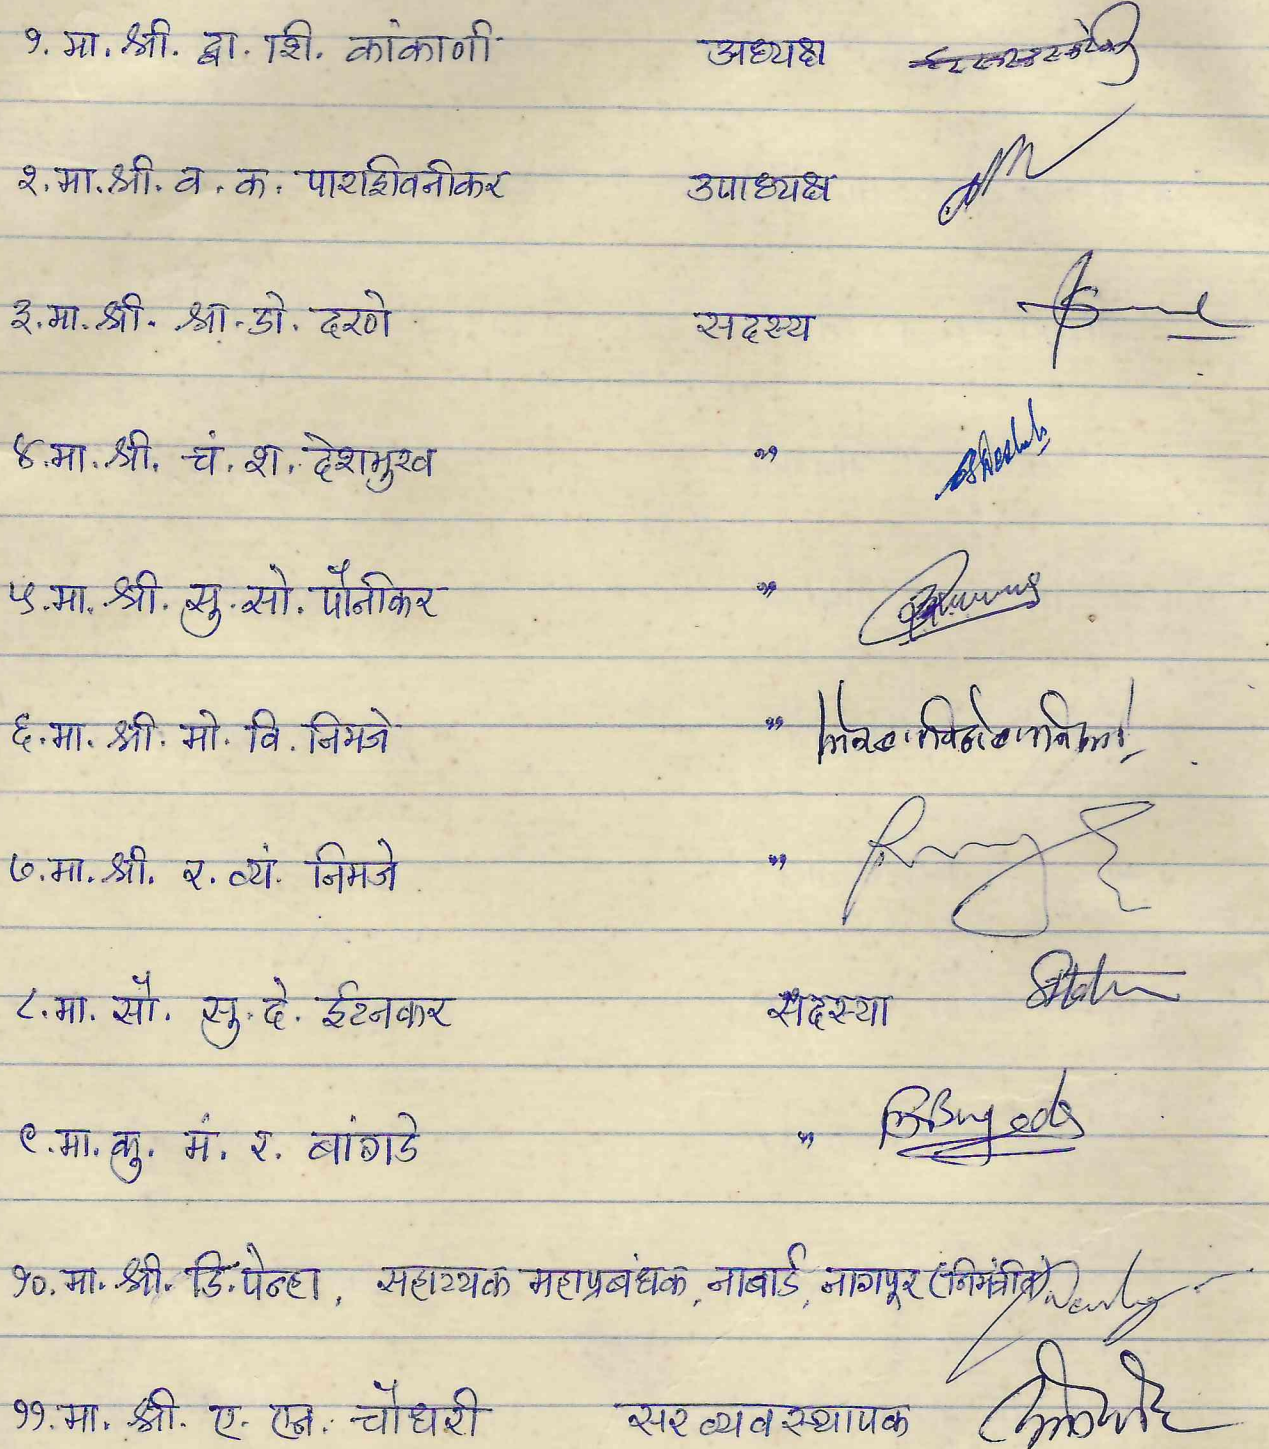 १. मा. श्री. द्वा. शि. काकाणी अध्यक्ष
२. मा. श्री. व. क. पाराशिवनीकर उपाध्यक्ष
३. मा. श्री. श्रा. डो. दरणे सदस्य
४. मा. श्री. चं. श. देशमुख "
५. मा. श्री. सु. सो. पौनीकर "
६. मा. श्री. मो. वि. निमजे "
७. मा. श्री. र. व्यं. निमजे "
८. मा. सौ. सु. दे. ईटनकर सदस्या
९. मा. कु. मं. र. बांगडे "
१०. मा. श्री. डि. पेन्हा, सहाय्यक महाप्रबंधक, नाबार्ड, नागपूर (निमंत्रीत)
११. मा. श्री. ए. एन. चौधरी सरव्यवस्थापक